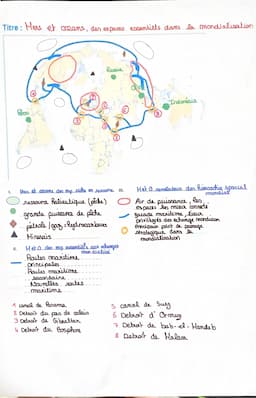 Titre : Mers et océans, des espaces essentiels dans la mondialisation
Russie
Chine
Indonésie
Pérou
I. Mers et océans des esp. riches en ressource
ressource Halieutique (pêche)
grande puissance de pêche
pétrole / gaz : Hydrocarbures
Minerais
II. M et O. des esp essentiels aux échanges mondialisés
Routes maritime principales
Routes maritime secondaire
Nouvelles routes maritime
III. M et O. révélateur des hiérarchie spacial mondial
Air de puissance, les espaces les mieux connecté
façade maritime, lieux privilégiés des échange mondiaux
Principaux point de passage stratégique dans la mondialisation
1 canal de Panama
2 Detroit du pas de calais
3 Detroit de Gibraltar
4 Detroit du Bosphore
5 canal de Suez
6 Detroit d'Ormuz
7 Detroit de bab-el-Mandeb
8 Detroit de Malacca